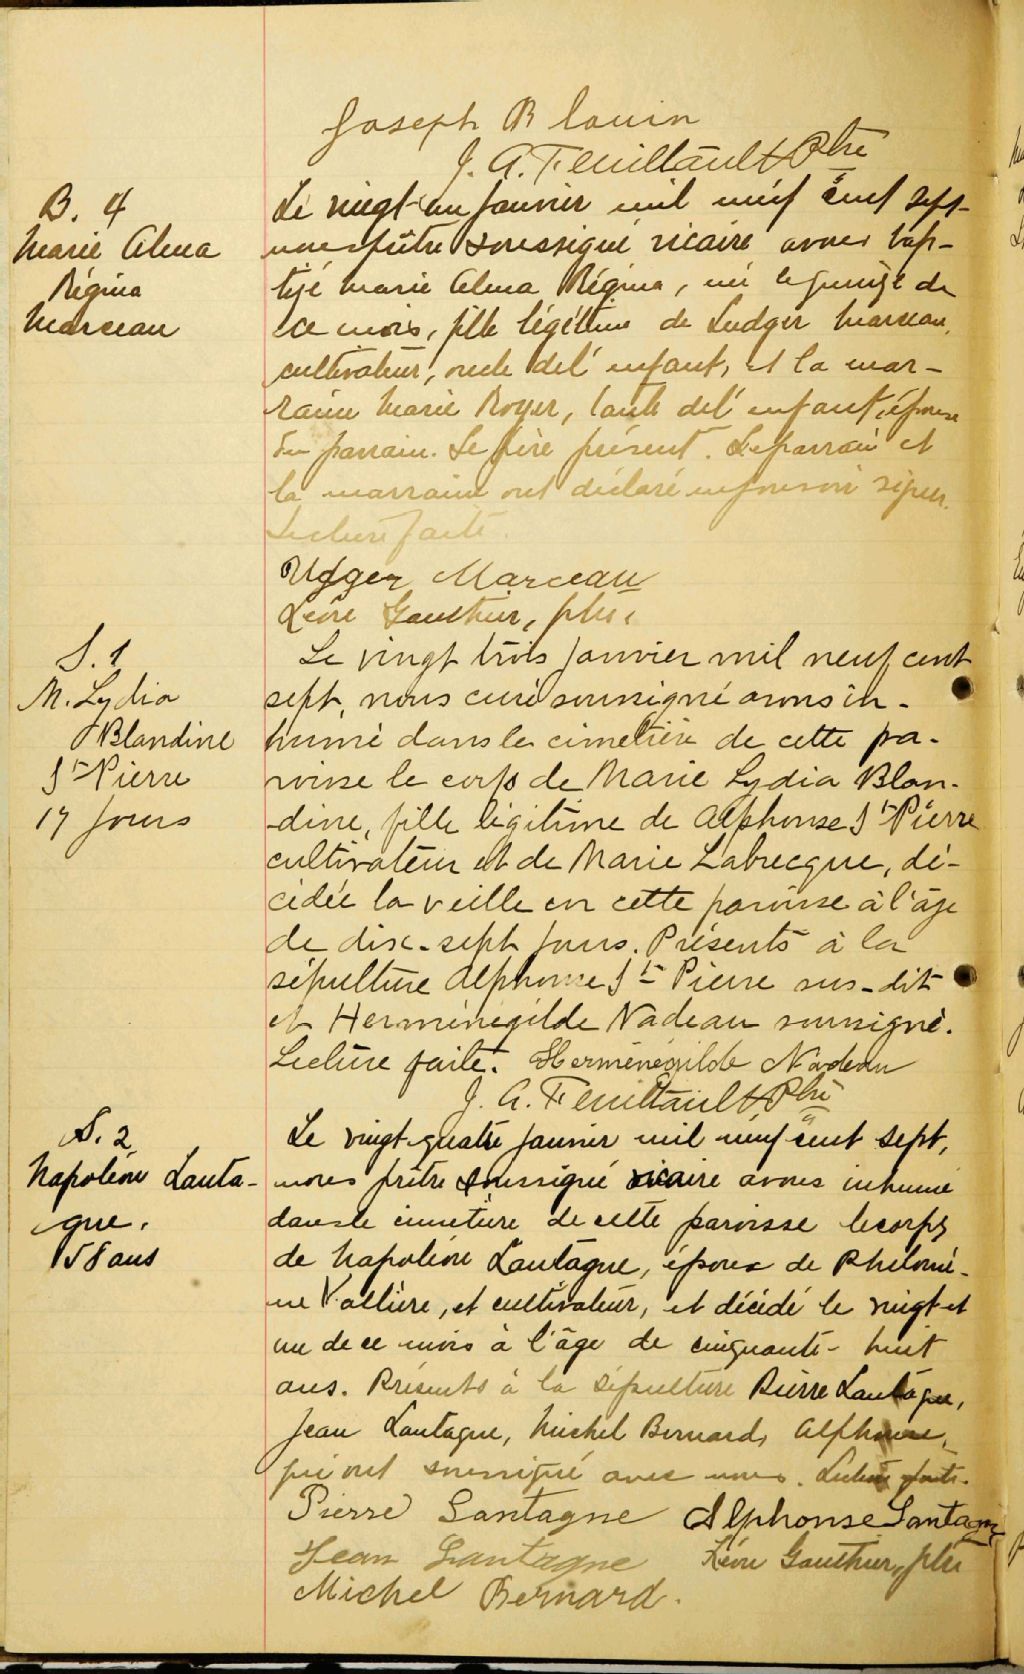 Joseph Blouin
J. A. Feuiltault Ptre
B. 4
Marie Alma
Régina
Marceau
Le vingt-un Janvier mil neuf cent sept
nous prêtre soussigné vicaire avons bap-
tisé Marie Alma Régina, née le quinze de
ce mois, fille légitime de Ludger Marceau,
cultivateur, oncle de l'enfant, et la mar-
raine Marie Royer, tante de l'enfant, épouse
du parrain. Le père présent. Le parrain et
la marraine ont déclaré ne pouvoir signer.
Lecture faite.
Marceau
Léon Gauthier, ptre.
S. 1
M. Lydia
Blandine
St-Pierre
17 Jours
Le vingt trois Janvier mil neuf cent
sept, nous curé soussigné avons in-
humé dans le cimetière de cette pa-
roisse le corps de Marie Lydia Blan-
-dine, fille légitime de Alphonse St-Pierre
cultivateur et de Marie Labrecque, dé-
cédée la veille en cette paroisse à l'âge
de dix-sept jours. Présents à la
sépulture Alphonse St-Pierre sus-dit
et Herménégilde Nadeau soussigné.
Lecture faite. Herménégilde Nadeau
J. A. Feuiltault Ptre
S. 2
Napoléon Lanta-
gne.
58 ans
Le vingt-quatre janvier mil neuf cent sept,
nous prêtre soussigné vicaire avons inhumé
dans le cimetière de cette paroisse le corps
de Napoléon Lantagne, époux de Philomè-
ne Vallière, et cultivateur, et décédé le vingt et
un de ce mois à l'âge de cinquante-huit
ans. Présents à la sépulture Pierre Lantagne,
Jean Lantagne, Michel Bernard, Alphonse,
qui ont soussigné avec nous. Lecture faite.
Pierre Lantagne Alphonse Lantagne
Jean Lantagne Léon Gauthier, ptre
Michel Bernard.